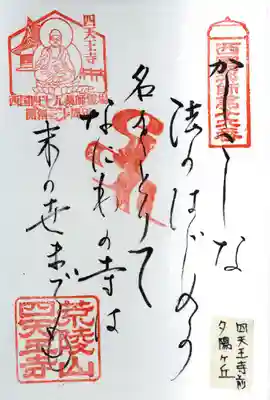 西国薬師第十六番
かしこしな
法のはじめの
名をとりて
なにわの寺は
末の世までも
四天王寺
西国四十九薬師霊場
荒陵山
四天王寺
四天王寺前
夕陽ヶ丘